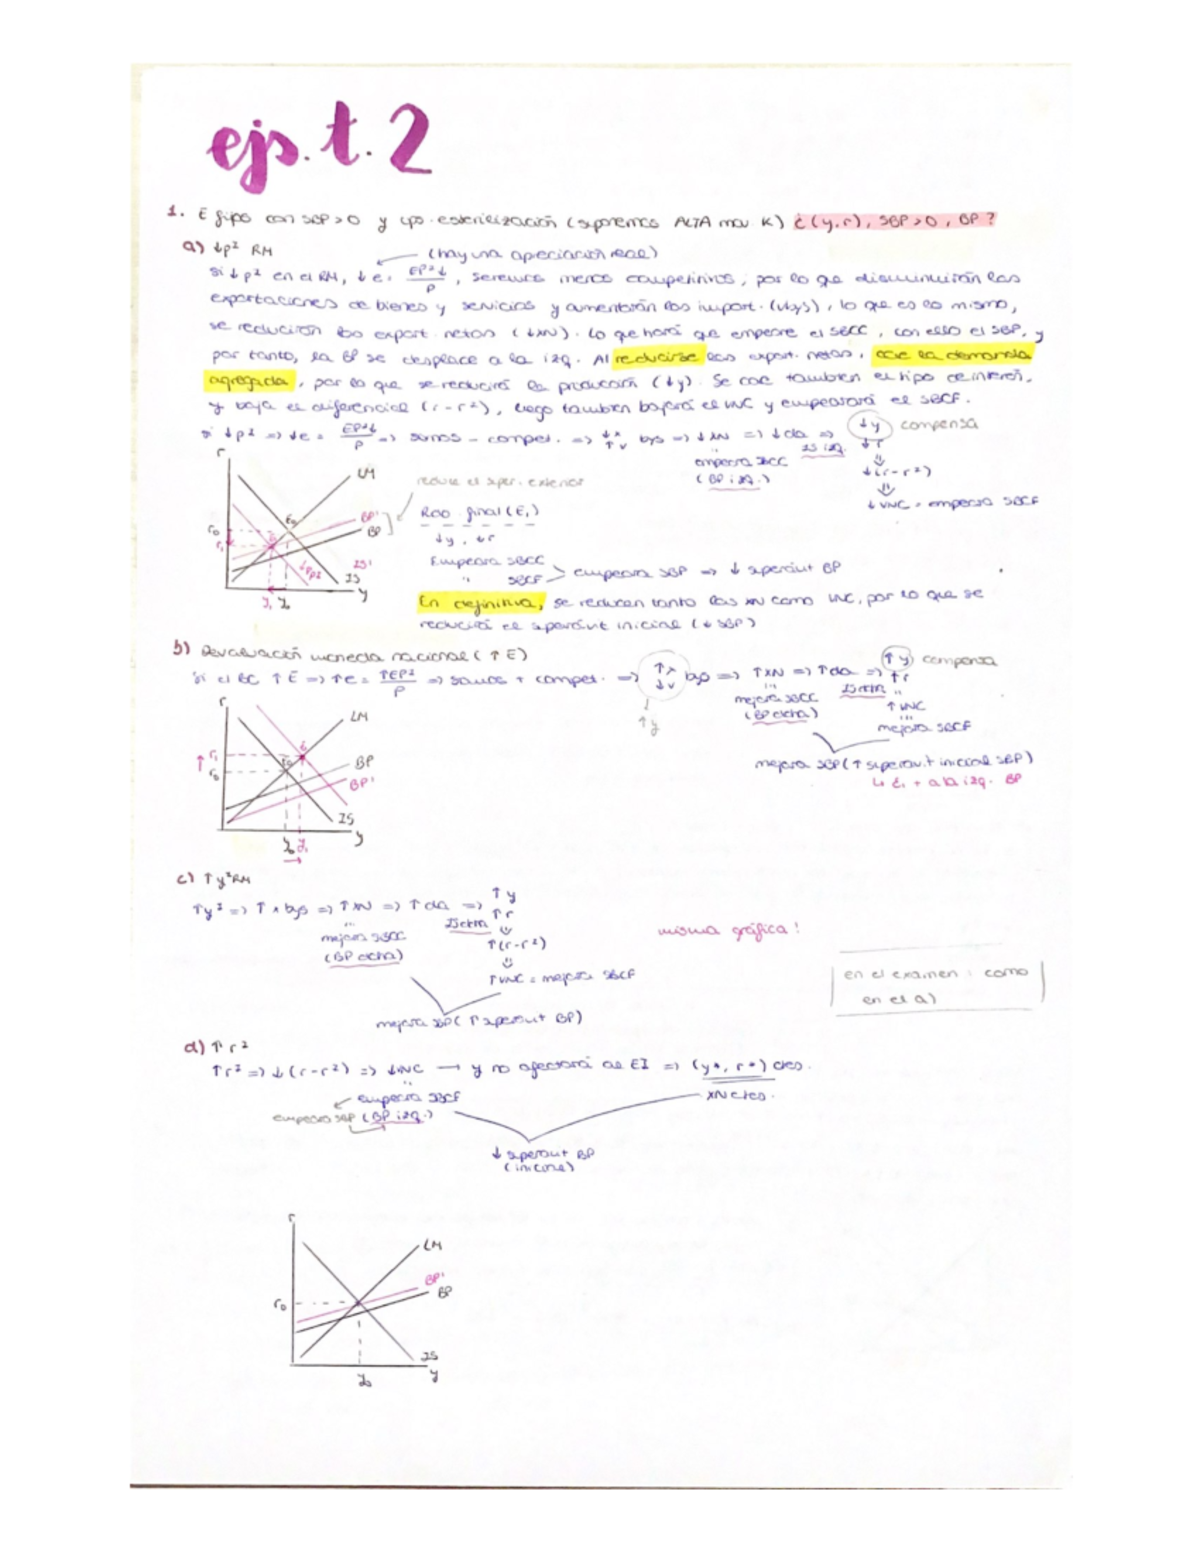 ejs. t. 2
1. E fijo con SBP > 0 y esterilización (suponemos ALTA mov. K) ¿(y,r), SBP > 0, BP?
a) ↓p² RM (hay una apreciación real)
si ↓p² en el RM, ↓e = EP²↓/P, seremos menos competitivos, por lo que disminuirán las
exportaciones de bienes y servicios y aumentarán las import. (↓bys), lo que es lo mismo,
se reducirán las export. netas (↓XN). Lo que hará que empeore el SBCC, con ello el SBP, y
por tanto, la BP se desplace a la izq. Al reducirse las export. netas, cae la demanda
agregada, por lo que se reducirá la producción (↓y). Se cae también el tipo de interés,
y baja el diferencial (r-r²), luego también bajará el VNC y empeorará el SBCF.
si ↓p² => ↓e = EP²↓/P => somos - compet. => ↓x ↑v bys => ↓XN => ↓da => ↓y compensa
↓r
IS izq.
empeora SBCC
(BP izq.)
↓(r-r²)
↓VNC = empeora SBCF
r
LM
reduce el super. exterior
BP'
BP
E₀
r₀
r₁
↓p²
IS'
IS
y
y₁ y₀
Rdo final (E₁)
↓y, ↓r
Empeora SBCC
" SBCF
empeora SBP => ↓ superávit BP
En definitiva, se reducen tanto las XN como VNC, por lo que se
reducirá el superávit inicial (↓SBP)
b) Devaluación moneda nacional (↑E)
Si el BC ↑E => ↑e = ↑EP²/P => somos + compet. => ↑x ↓v bys => ↑XN => ↑da => ↑y compensa
↑r
↑y
mejora SBCC
(BP dcha)
IS dcha
↑VNC
mejora SBCF
mejora SBP (↑ superávit inicial SBP)
↳ E₁ + a la izq. BP
r
LM
r₁
r₀
E₀
BP
BP'
IS
y
y₀ y₁
c) ↑y² RM
↑y² => ↑x bys => ↑XN => ↑da => ↑y
↑r
mejora SBCC
(BP dcha)
IS dcha
↑(r-r²)
↑VNC = mejora SBCF
mejora SBP (↑ superávit BP)
misma gráfica!
en el examen : como
en el a)
d) ↑r²
↑r² => ↓(r-r²) => ↓VNC → y no afectará al EI => (y*, r*) ctes.
empeora SBCF
XN ctes.
empeora SBP (BP izq.)
↓ superávit BP
(inicial)
r
LM
BP'
BP
r₀
IS
y
y₀